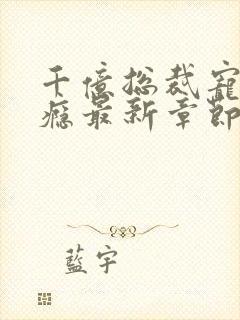 千億総裁寵
癮最新章節
藍宇